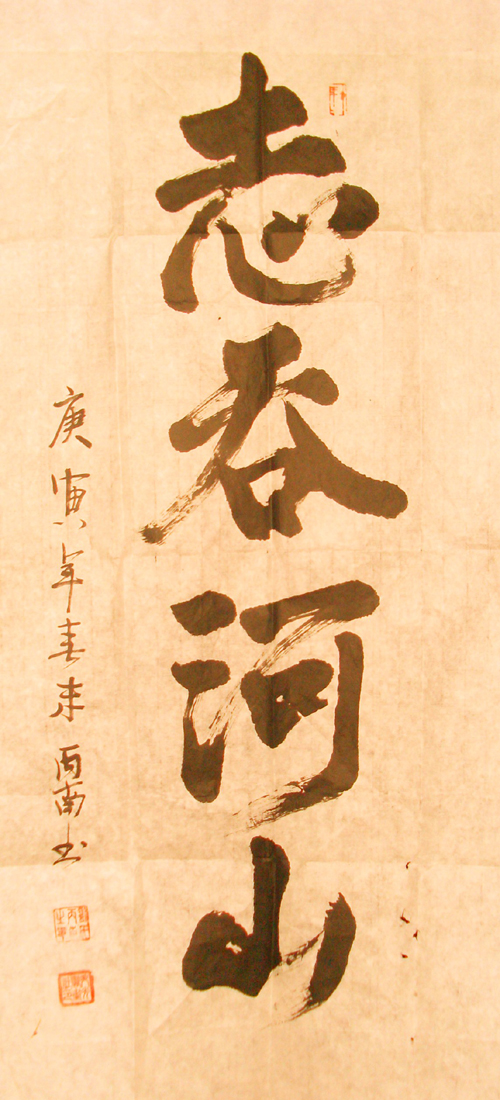 志吞河山
庚寅年春末丙南书